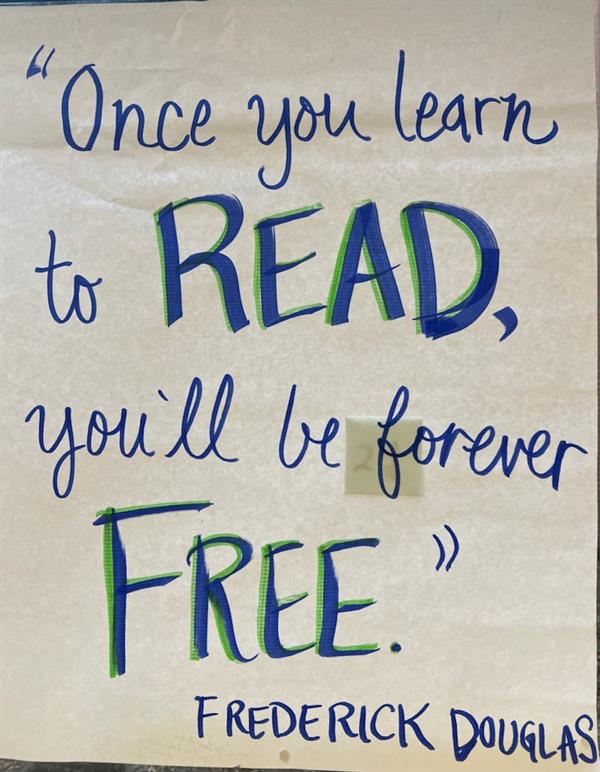 “Once you learn
to READ,
you'll be forever
FREE.”
FREDERICK DOUGLAS